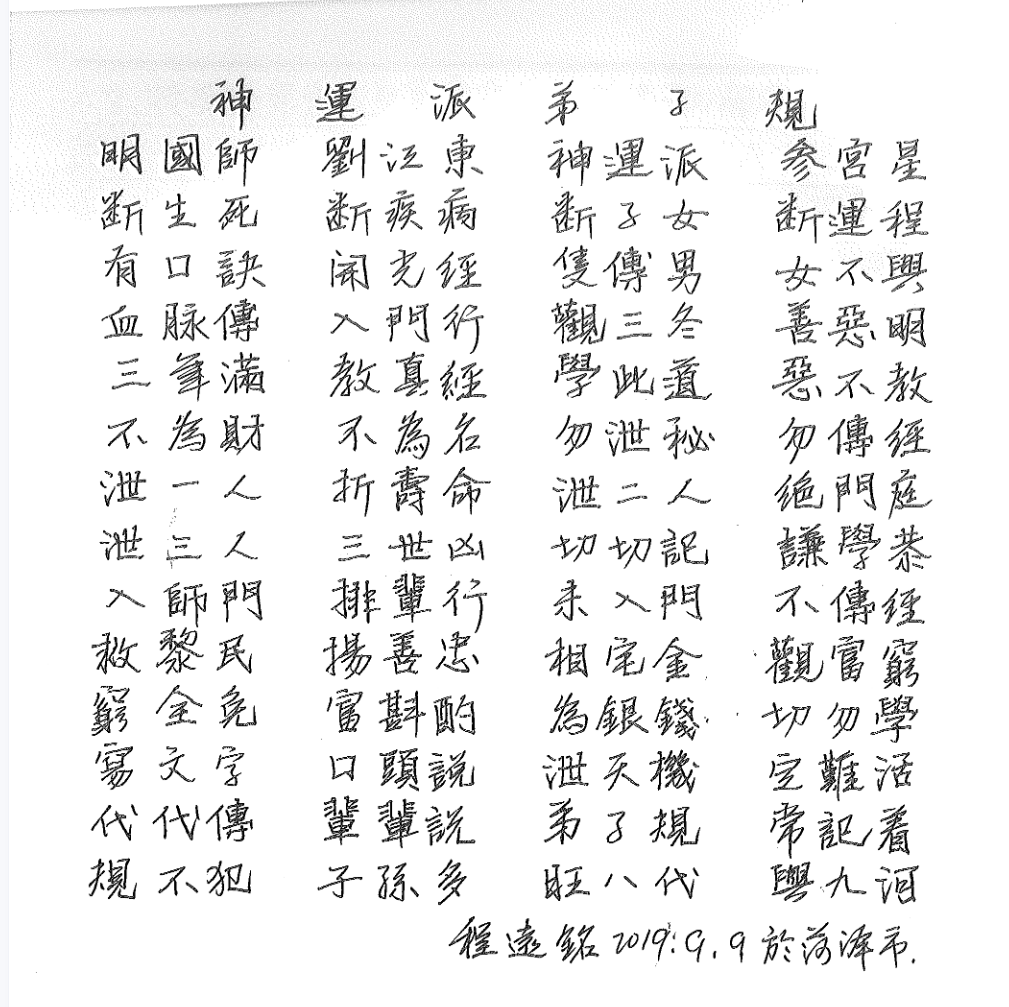 神運派弟子規
明國師 劉江東 神運派 參宮星
断生死 断疾病 断子女 断運程
有口訣 開光經 隻傳男 女不與
血脉傳 入門行 觀三冬 善惡明
三年滿 教真經 學此道 惡不教
不為財 不為名 勿泄秘 勿傳經
泄一人 折壽命 泄二人 絶門庭
泄三人 三世凶 切切記 謙學恭
入師門 排輩行 未入門 不傳經
救黎民 揚善忠 相宅金 觀富窮
窮全免 富斟酌 為銀錢 切勿學
寫文字 口頭説 泄天機 定難活
代代傳 輩輩説 弟子規 常記着
規不犯 子孫多 旺八代 與九河
程遠銘 2019.9.9 於菏泽市.